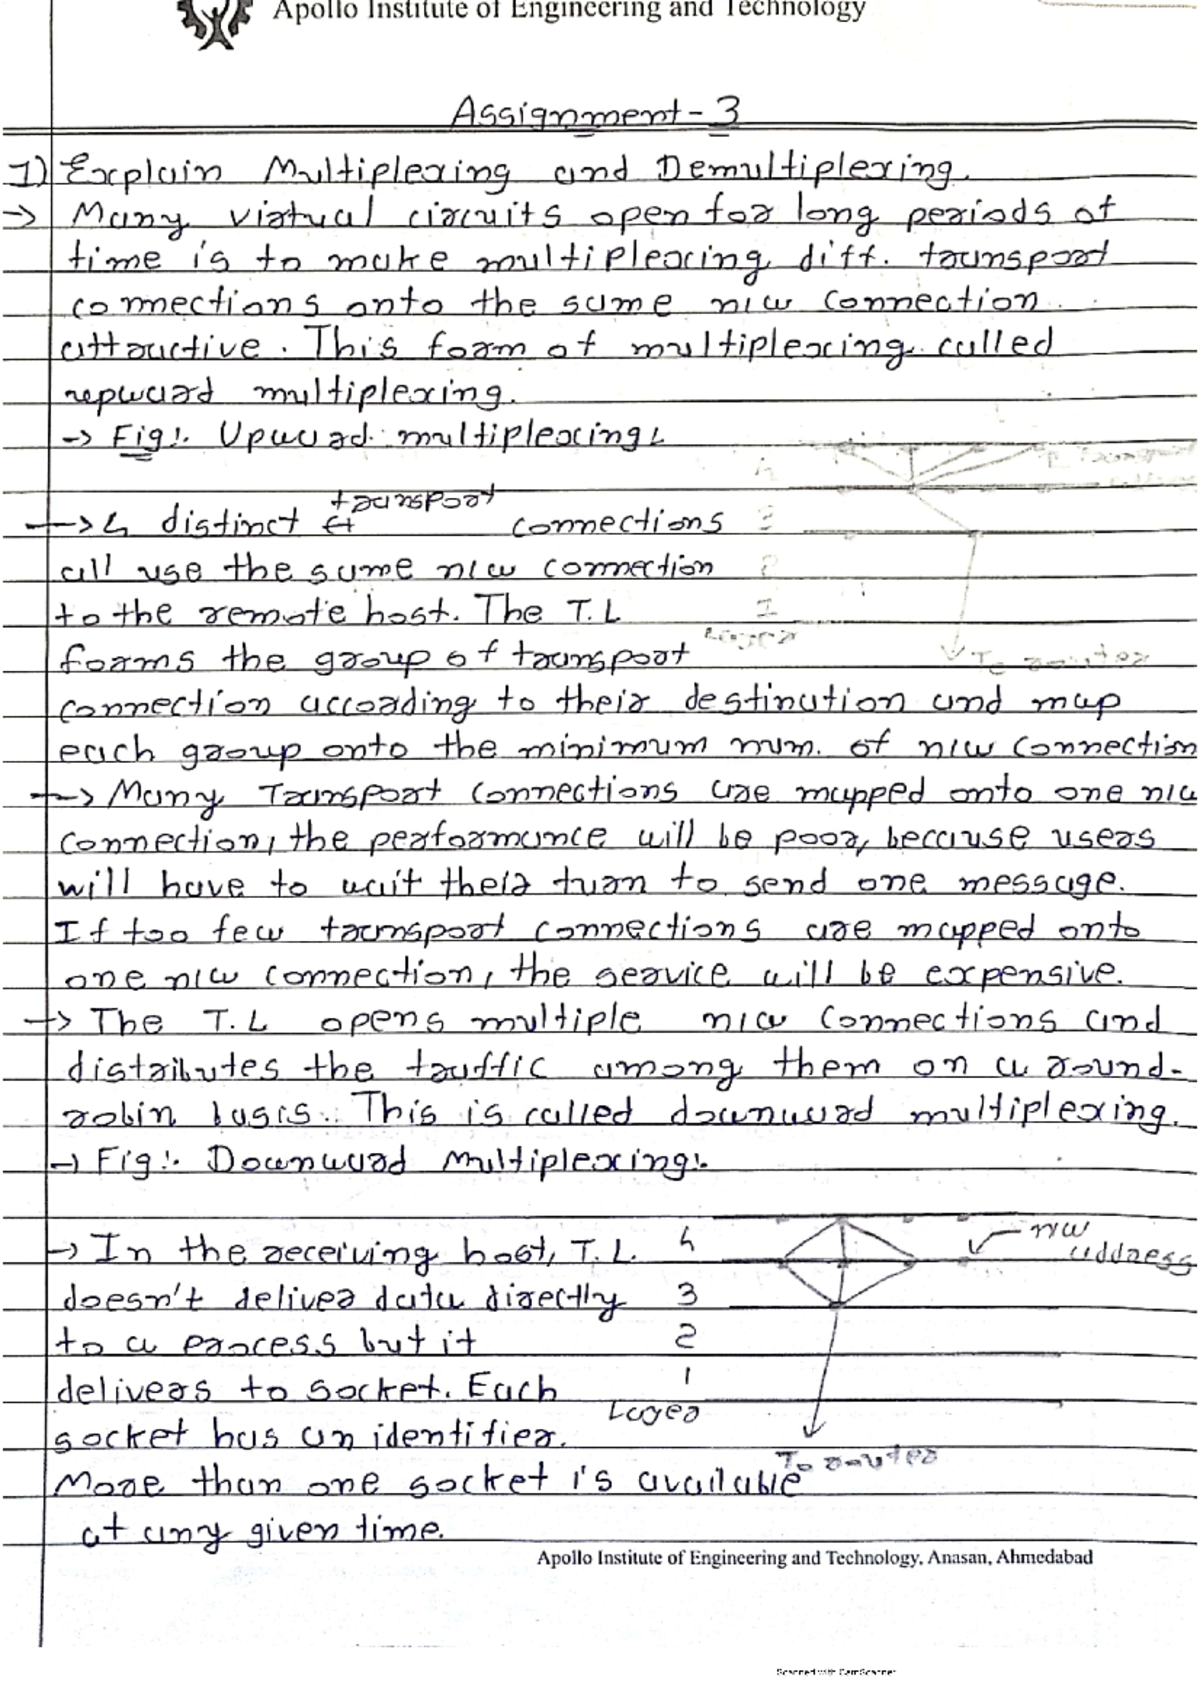 Apollo Institute of Engineering and Technology
Assignment-3
1) Explain Multiplexing and Demultiplexing.
→ Many virtual circuits open for long periods of
time is to make multiplexing diff. transport
connections onto the same n/w connection
attractive. This form of multiplexing called
repward multiplexing.
→ Fig:. Upward multiplexing:
4 P Transport
transport
→ 4 distinct connections 3
all use the same n/w connection 2
to the remote host. The T.L 1
Layer
forms the group of transport To router
connection according to their destination and map
each group onto the minimum num. of n/w connection
→ Many Transport connections are mapped onto one n/w
connection, the performance will be poor, because users
will have to wait their turn to send one message.
If too few transport connections are mapped onto
one n/w connection, the service will be expensive.
→ The T.L opens multiple n/w connections and
distributes the traffic among them on a round-
robin basis. This is called downward multiplexing.
→ Fig:. Downward Multiplexing:.
→ In the receiving host, T.L. 4 n/w
address
doesn't deliver data directly 3
to a process but it 2
delivers to socket. Each 1
Layer
socket has an identifier.
To router
More than one socket is available
at any given time.
Apollo Institute of Engineering and Technology, Anasan, Ahmedabad
Scanned with CamScanner